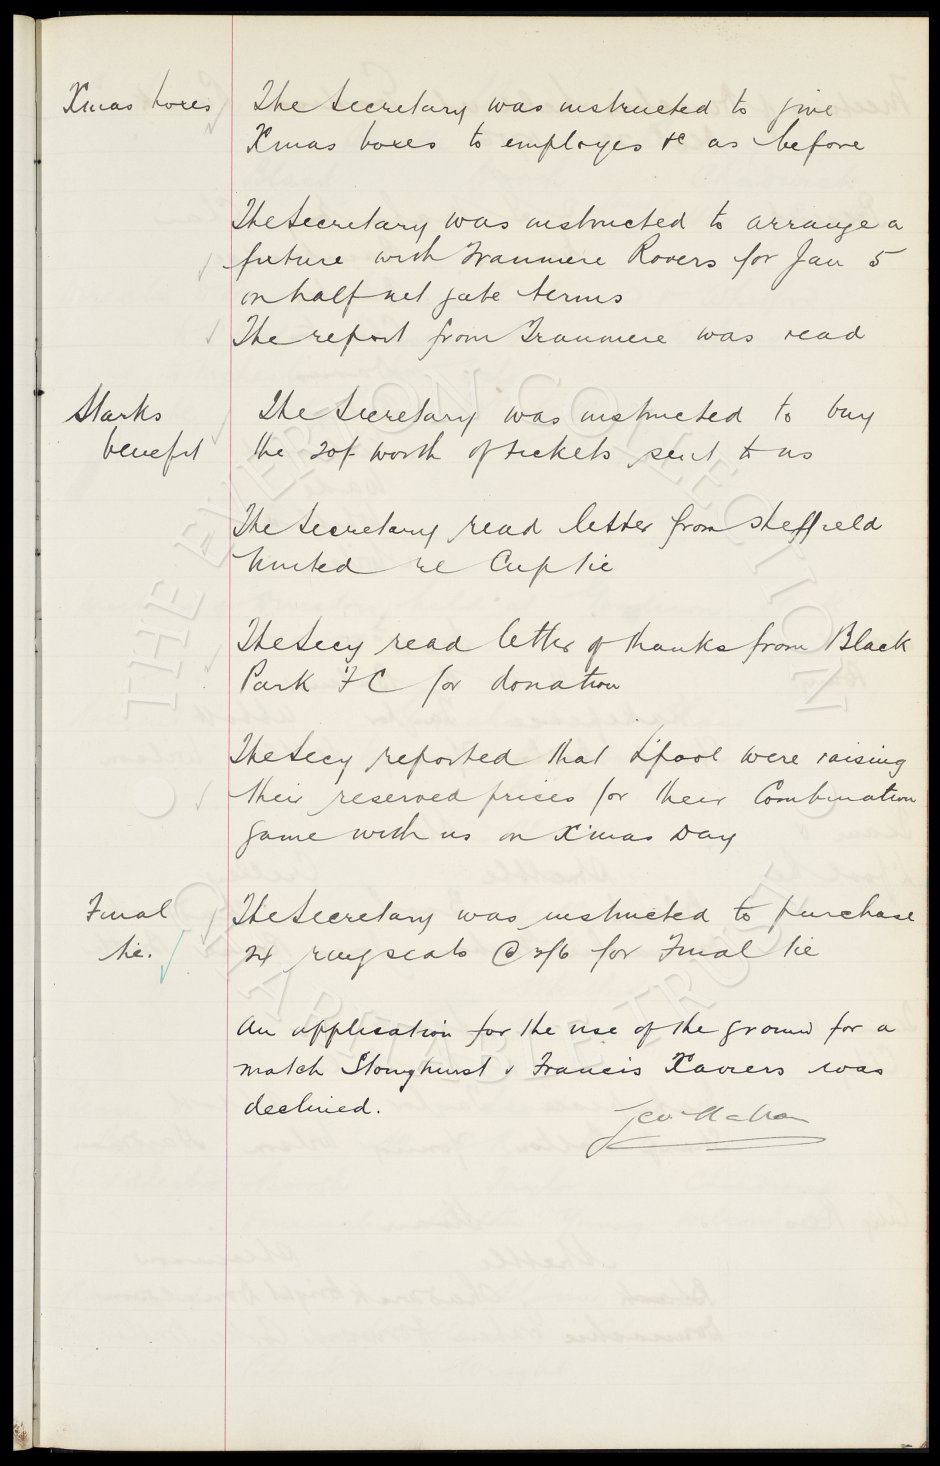 Xmas boxes The Secretary was instructed to give
Xmas boxes to employes &c as before
The Secretary was instructed to arrange a
fixture with Tranmere Rovers for Jan 5
on half net gate terms
The report from Tranmere was read
Starks The Secretary was instructed to buy
benefit the 20/- worth of tickets sent to us
The Secretary read letter from Sheffield
United re Cup tie
The Secy read letter of thanks from Black
Park F C for donation
The Secy reported that L'pool were raising
their reserved prices for their Combination
game with us on X'mas Day
Final The Secretary was instructed to purchase
tie. 24 ring seats @ 2/6 for Final tie
An application for the use of the ground for a
match Stonyhurst v Francis Xaviers was
declined.
Geo Mahon
© THE EVERTON COLLECTION
CHARITABLE TRUST